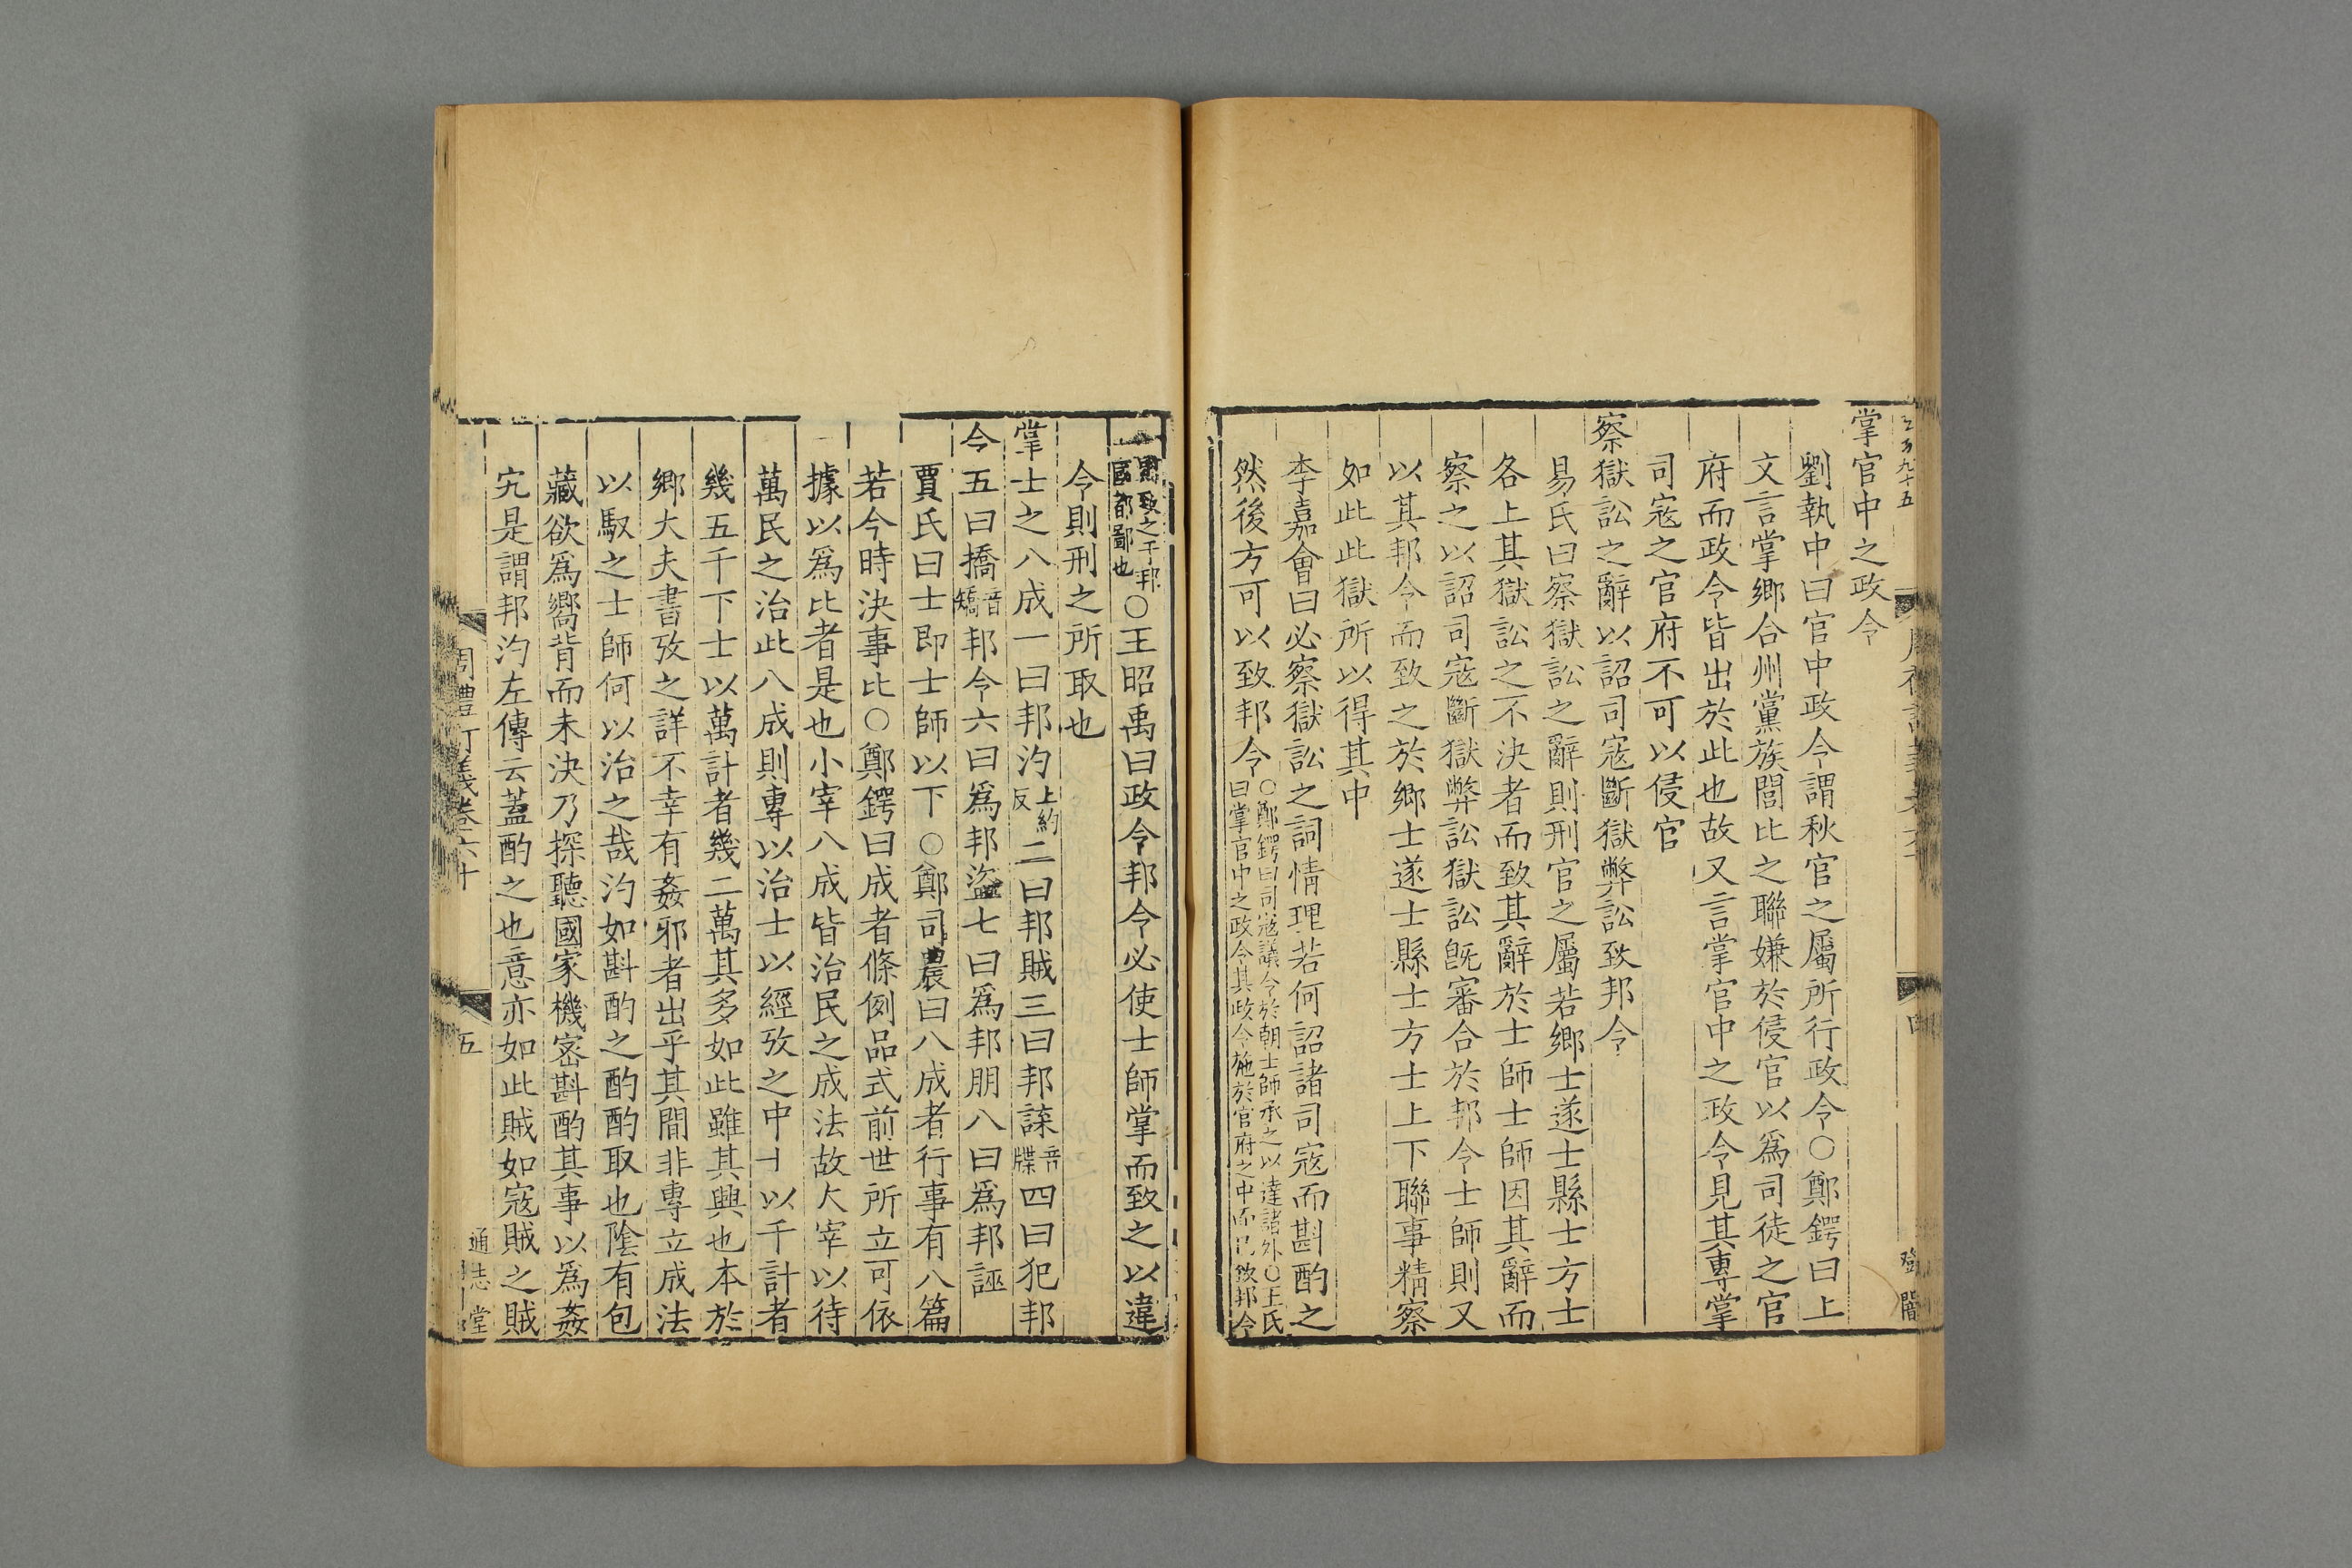 掌官中之政令
劉執中曰官中政令謂秋官之屬所行政令○鄭鍔曰上
文言掌鄉合州黨族閭比之聯嫌於侵官以爲司徒之官
府而政令皆出於此也故又言掌官中之政令見其專掌
司寇之官府不可以侵官
察獄訟之辭以詔司寇斷獄弊訟致邦令
易氏曰察獄訟之辭則刑官之屬若鄉士遂士縣士方士
各上其獄訟之不決者而致其辭於士師士師因其辭而
察之以詔司寇斷獄弊訟獄訟旣審合於邦令士師則又
以其邦令而致之於鄉士遂士縣士方士上下聯事精察
如此此獄所以得其中
李嘉會曰必察獄訟之詞情理若何詔諸司寇而斟酌之
然後方可以致邦令○鄭鍔曰司寇議令於朝士師承之以達諸外○王氏
曰掌官中之政令其政令施於官府之中而已致邦令
致之于邦
國都鄙也○王昭禹曰政令邦令必使士師掌而致之以違
令則刑之所取也
掌士之八成一曰邦汋上約反二曰邦賊三曰邦諜音牒四曰犯邦
令五曰撟音矯邦令六曰爲邦盜七曰爲邦朋八曰爲邦誣
賈氏曰士即士師以下○鄭司農曰八成者行事有八篇
若今時決事比○鄭鍔曰成者條例品式前世所立可依
據以爲比者是也小宰八成皆治民之成法故大宰以待
萬民之治此八成則專以治士以經攷之中士以千計者
幾五千下士以萬計者幾二萬其多如此雖其興也本於
鄉大夫書攷之詳不幸有姦邪者出乎其間非專立成法
以馭之士師何以治之哉汋如斟酌之酌酌取也陰有包
藏欲爲嚮背而未決乃探聽國家機密斟酌其事以爲姦
宄是謂邦汋左傳云蓋酌之也意亦如此賊如寇賊之賊
周禮訂義卷六十
五
通志堂